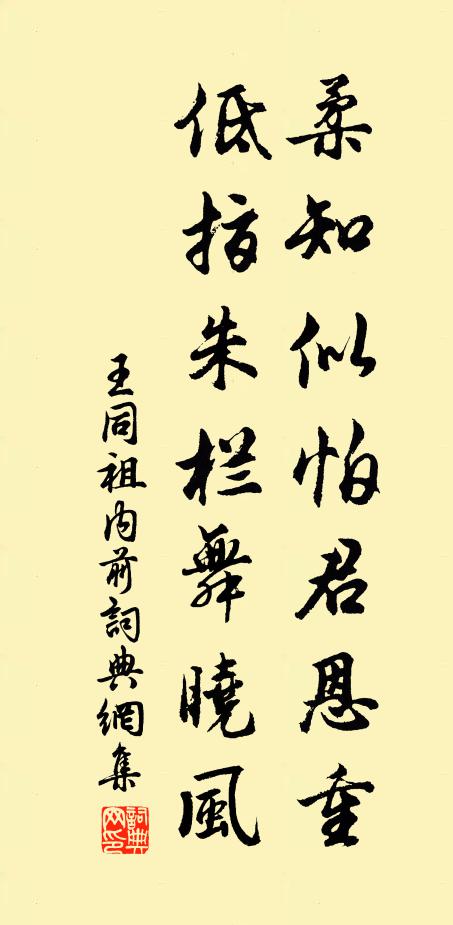 柔知似怕君恩重
低指朱栏舞曉風
王同祖内前詞典網集
詞典网印